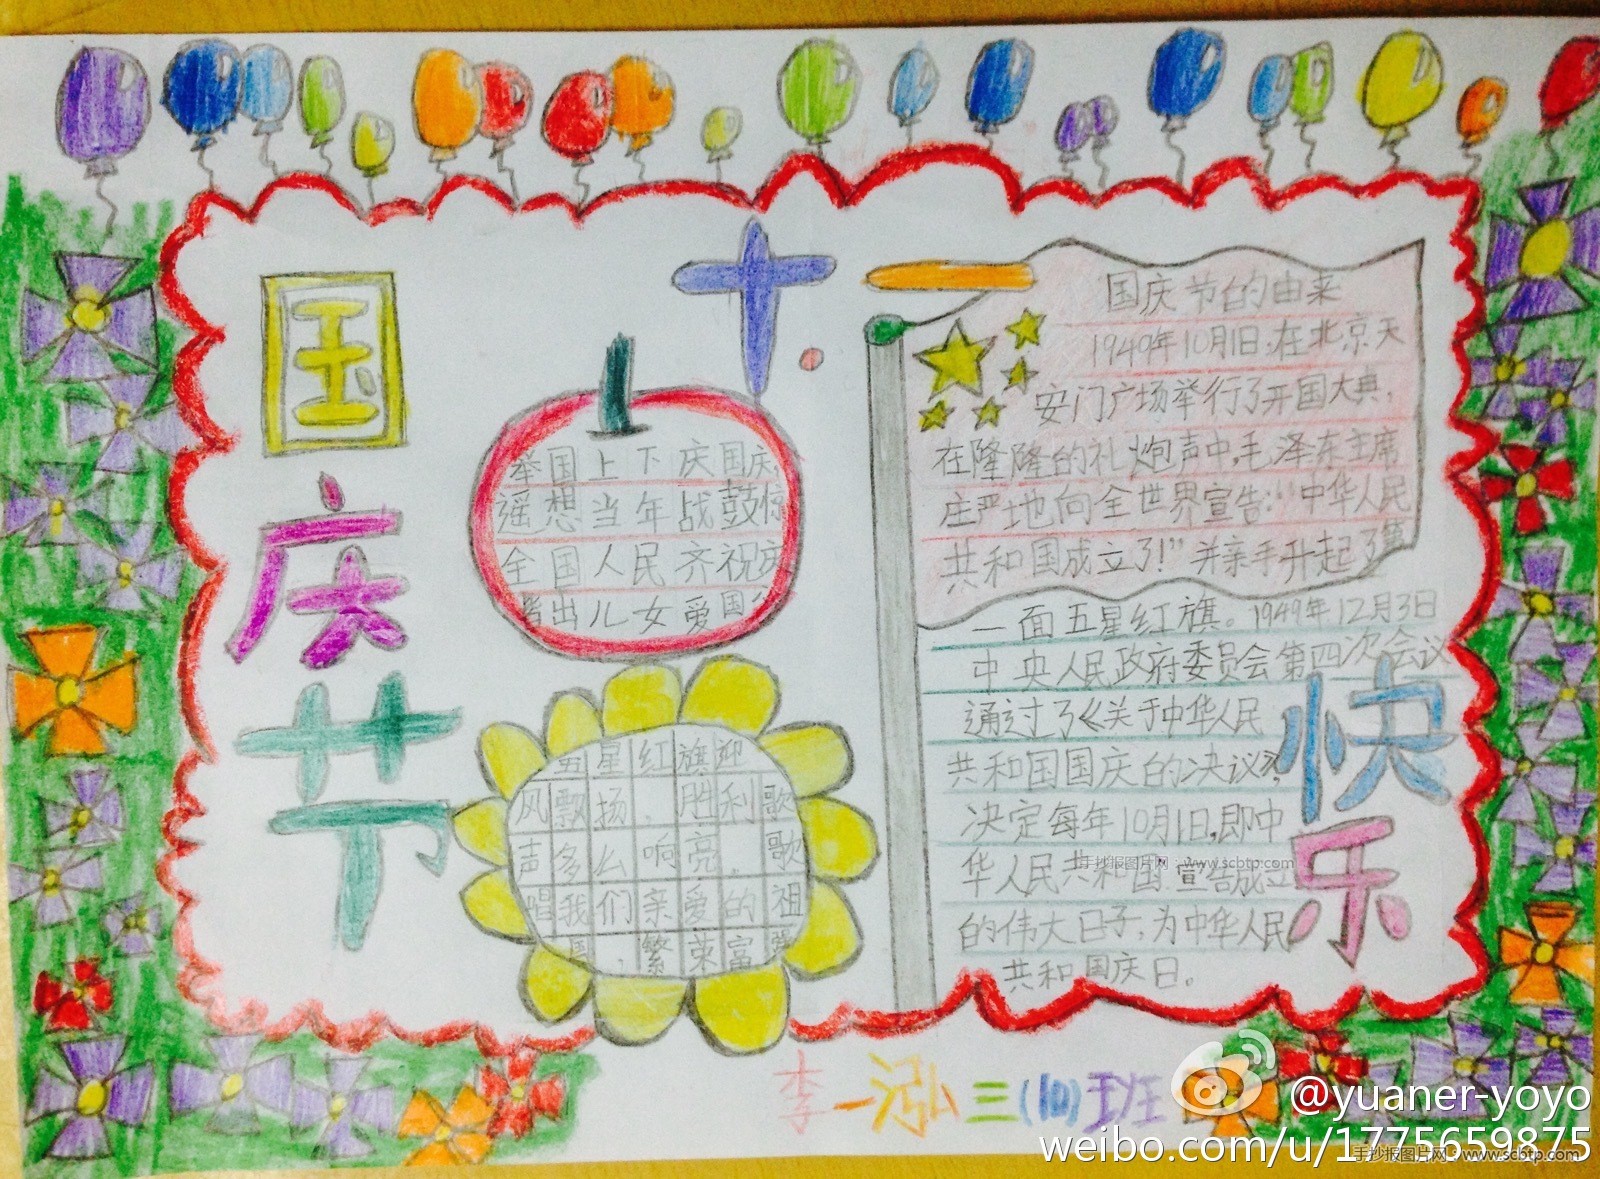 十·一
国庆节
快乐
举国上下庆国庆,
遥想当年战鼓惊
全国人民齐祝庆
出儿女爱国
五星红旗迎
风飘扬,胜利歌
声多么响亮,歌
唱我们亲爱的祖
国,繁荣富强
国庆节的由来
1949年10月1日,在北京天
安门广场举行了开国大典,
在隆隆的礼炮声中,毛泽东主席
庄严地向全世界宣告:“中华人民
共和国成立了!”并亲手升起了第
一面五星红旗。1949年12月3日
中央人民政府委员会第四次会议
通过了《关于中华人民
共和国国庆的决议》,
决定每年10月1日,即中
华人民共和国宣告成立
的伟大日子,为中华人民
共和国庆日。
手抄报图片网:www.scbtp.com
李一泓三(10)班
@yuaner-yoyo
weibo.com/u/1775659875
手抄报图片网:www.scbtp.com